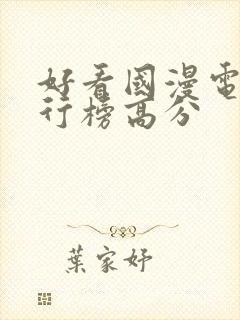 好看國漫電
行榜高分
葉家妤